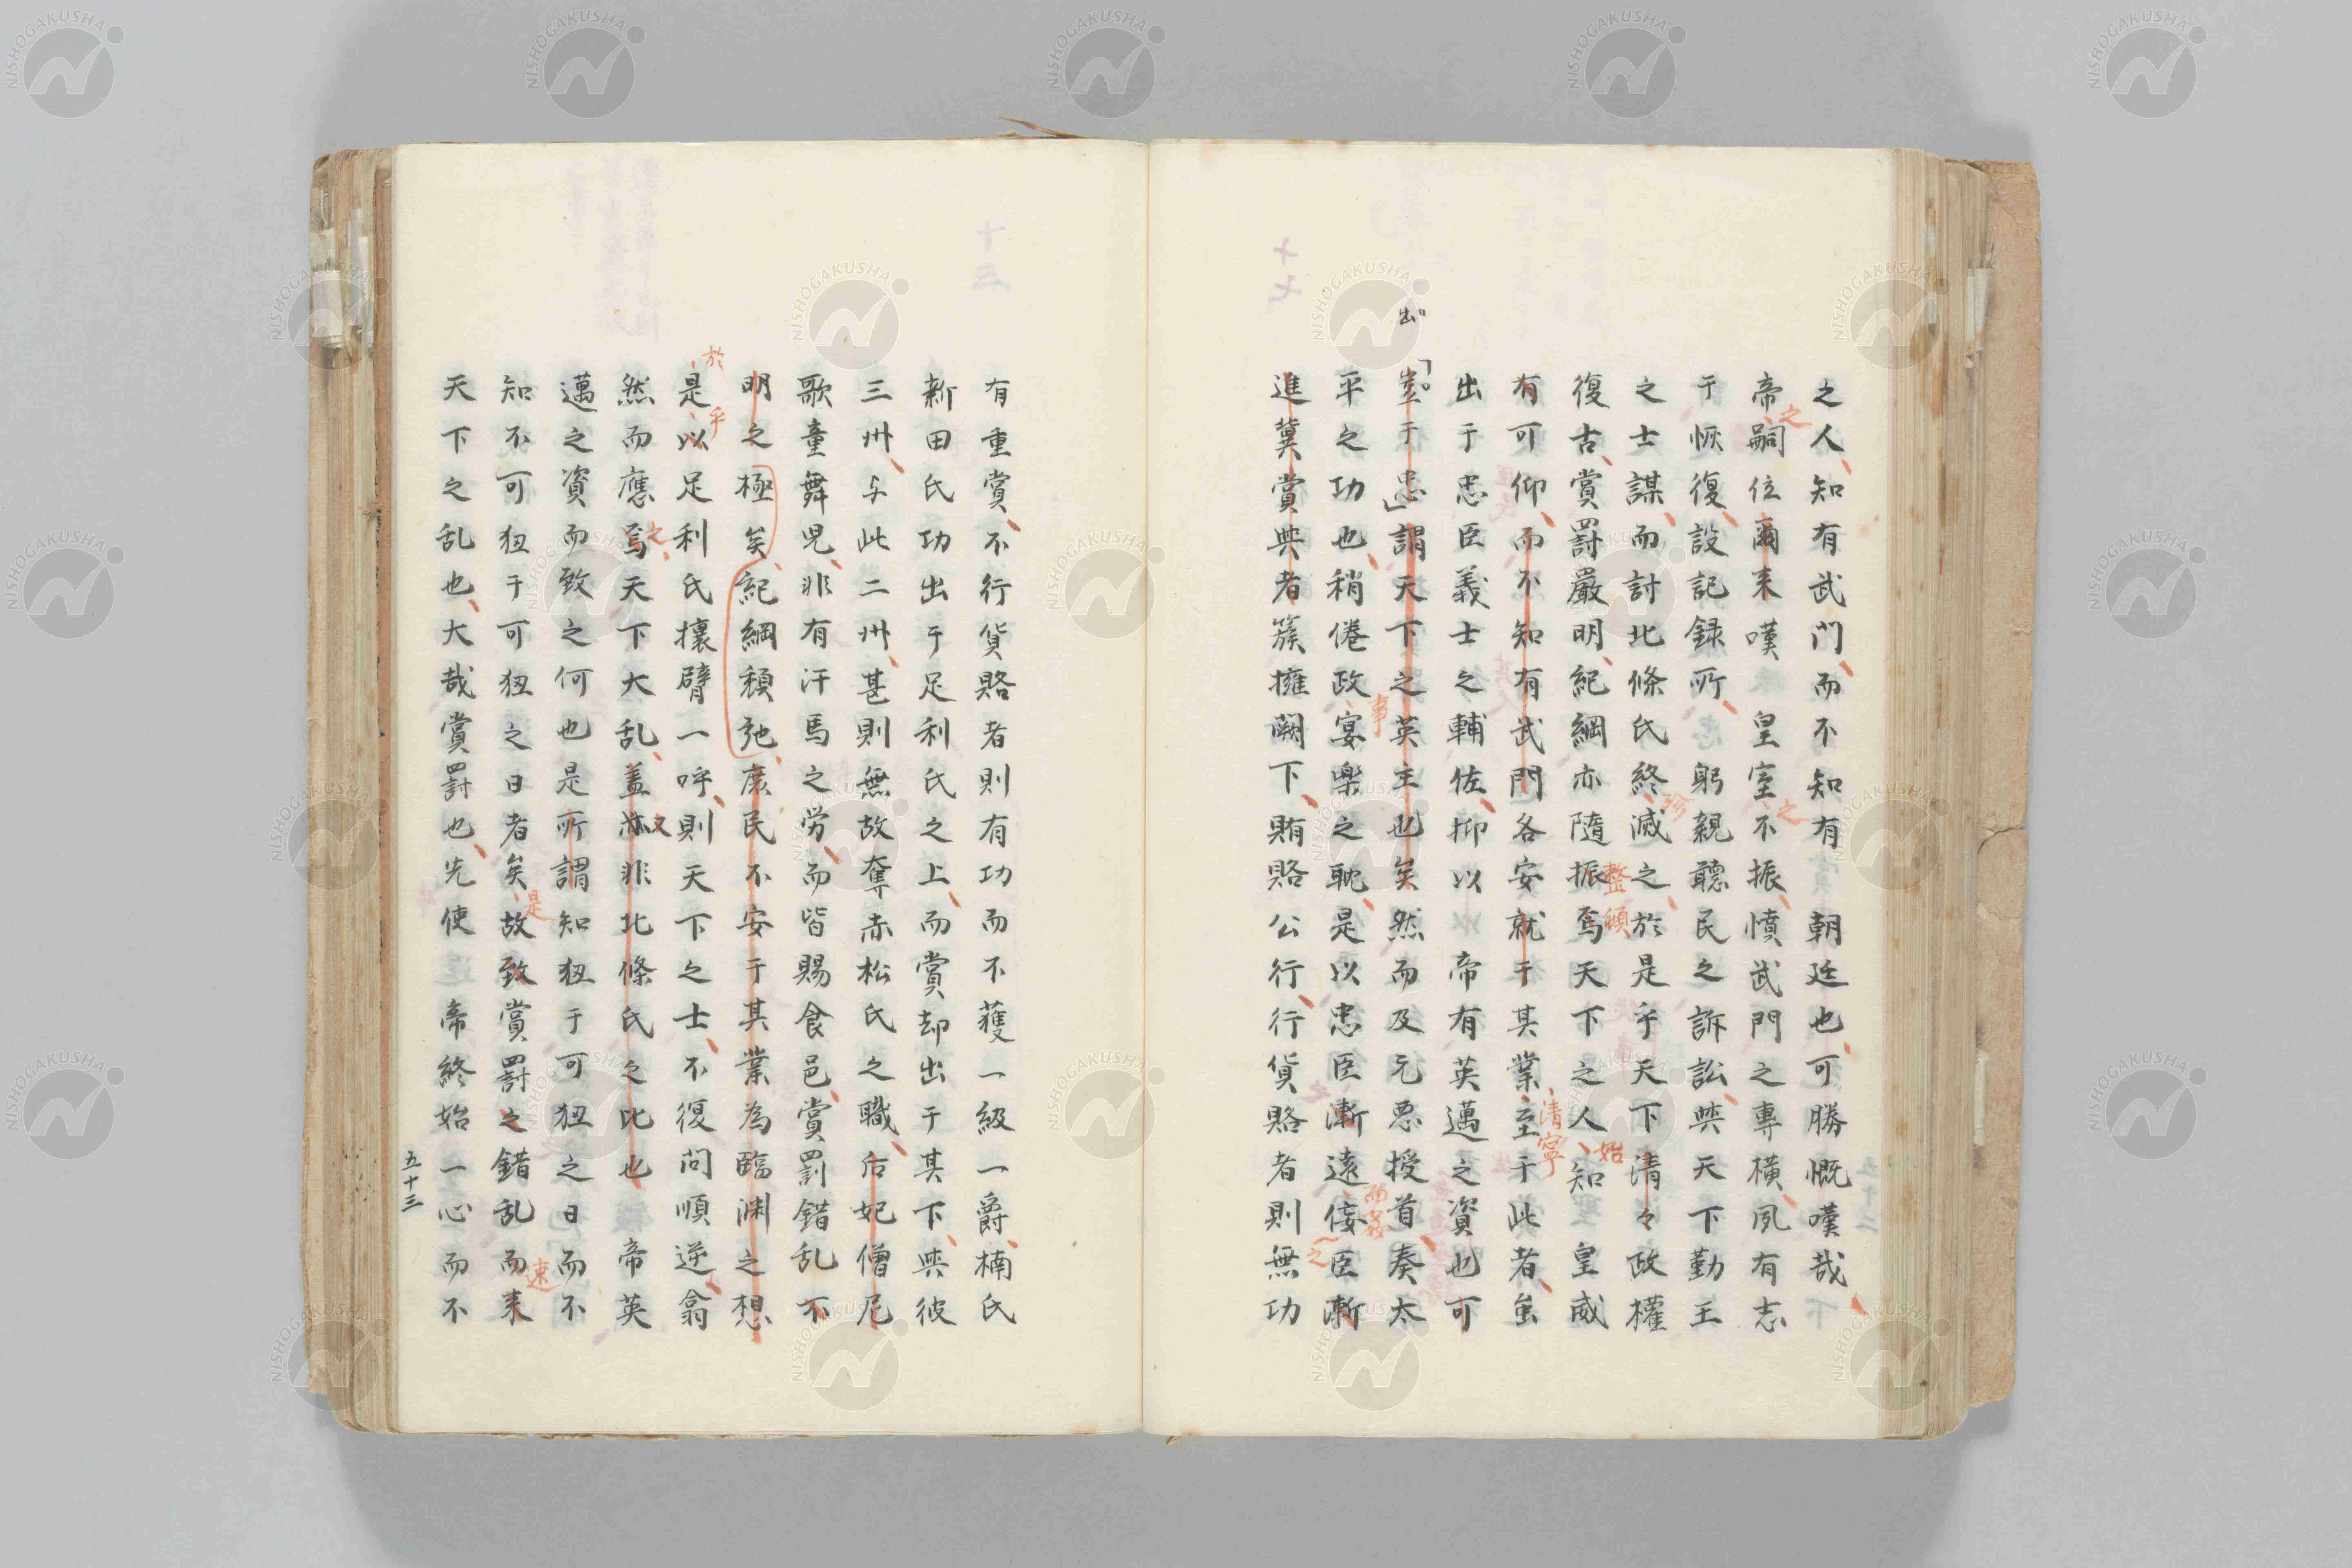 之人知有武門而不知有　朝廷也可勝慨嘆哉
帝之嗣位爾来嘆　皇室之不振憤武門之專横夙有志
于恢復設記録所　躬親聽民之訴訟與天下勤王
之士謀而討北條氏終滅之於是乎天下清々政權
復古賞罰嚴明紀綱亦隨振焉天下之人知　皇威
整頓
始
有可仰而不知有武門各安就于其業至于此者虽
清寧
出于忠臣義士之輔佐抑以　帝有英邁之資也可
出
豈于忠謂天下之英主也矣然而及元悪授首奏太
平之功也稍倦政宴樂之耽是以忠臣漸遠佞臣漸
事
而姦
之
進冀賞與者簇擁闕下賄賂公行行貨賂者則無功
有重賞不行貨賂者則有功而不獲一級一爵楠氏
新田氏功出于足利氏之上而賞却出于其下與彼
三州与此二州甚則無故奪赤松氏之職后妃僧尼
歌童舞児非有汗馬之労而皆賜食邑賞罰錯乱不
明之極矣紀綱頽弛庶民不安于其業為臨渊之想
於
乎
是以足利氏攘臂一呼則天下之士不復問順逆翕
然而應焉天下大乱蓋亦非北條氏之比也　帝英
之
邁之資而致之何也是所謂知狃于可狃之日而不
知不可狃于可狃之日者矣故致賞罰之錯乱而来
是
速
天下之乱也大哉賞罰也先使　帝終始一心而不
五十三
NISHOGAKUSHA